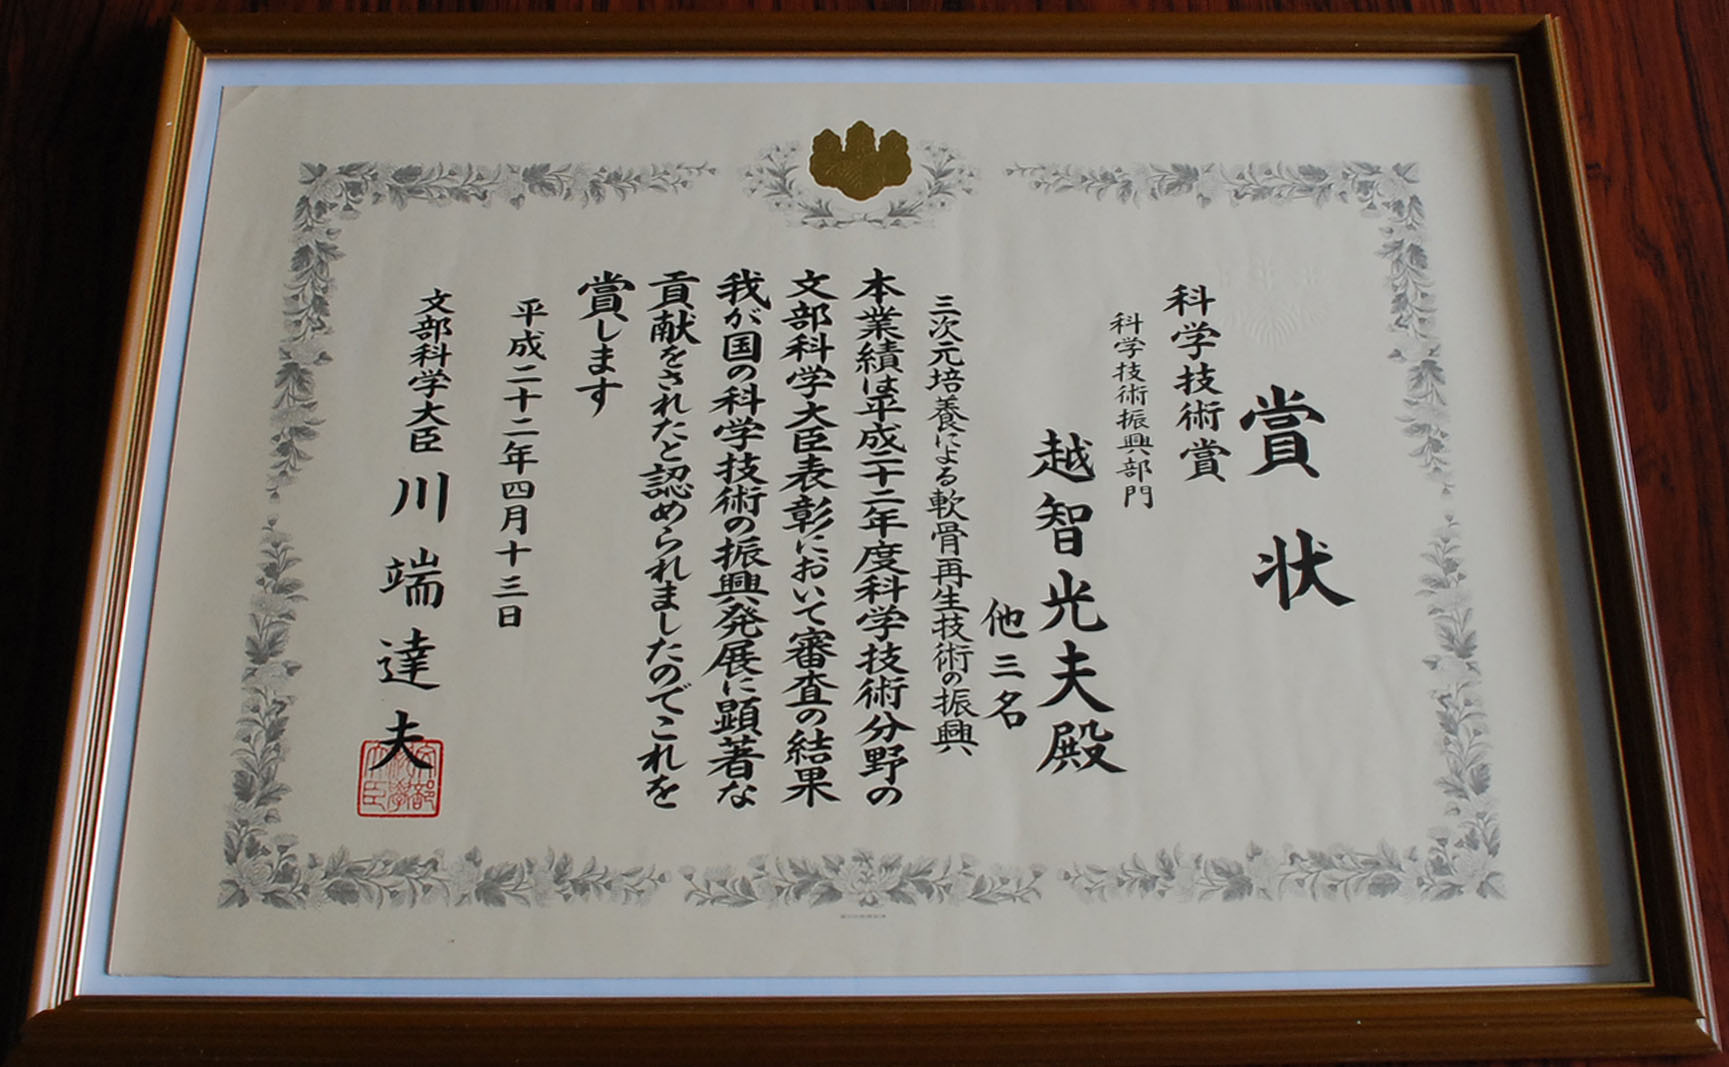 賞状
科学技術賞
科学技術振興部門
越智光夫殿
他三名
三次元培養による軟骨再生技術の振興
本業績は平成二十二年度科学技術分野の
文部科学大臣表彰において審査の結果
我が国の科学技術の振興発展に顕著な
貢献をされたと認められましたのでこれを
賞します
平成二十二年四月十三日
文部科学大臣 川端達夫